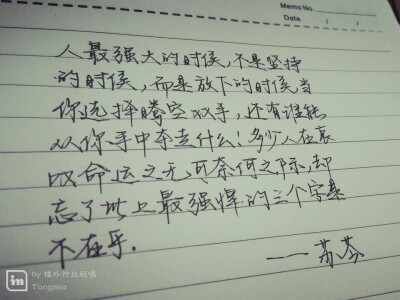 Memo No.
Date / /
人最强大的时侯,不是坚持
的时侯,而是放下的时侯,当
你选择腾空双手,还有谁能
从你手中夺走什么!多少人在哀
叹命运之无可奈何之际,却
忘了世上最强悍的三个字是
不在乎.
——苏芩
in
by
Tongseo